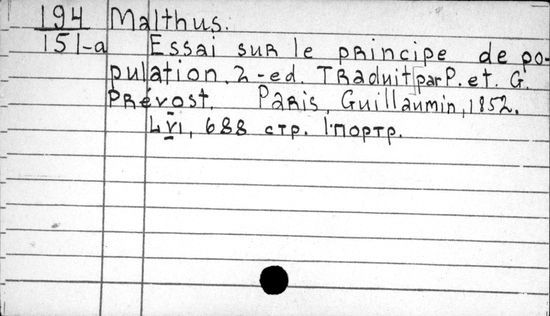 194 Malthus.
151-a Essai sur le principe de po-
pulation. 2-ed. Traduit par P. et. G.
Prévost. Paris, Guillaumin, 1852.
LVI, 688 стр. 1 портр.